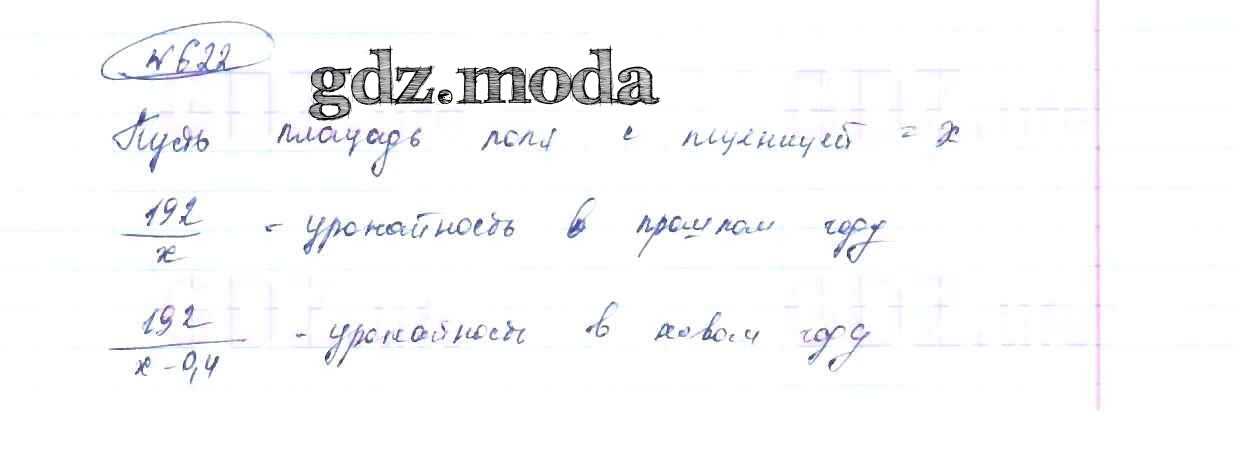 № 622
gdz.moda
Пусть площадь поля с пшеницей = x
192/x - урожайность в прошлом году
192/x - 0,4 - урожайность в новом году